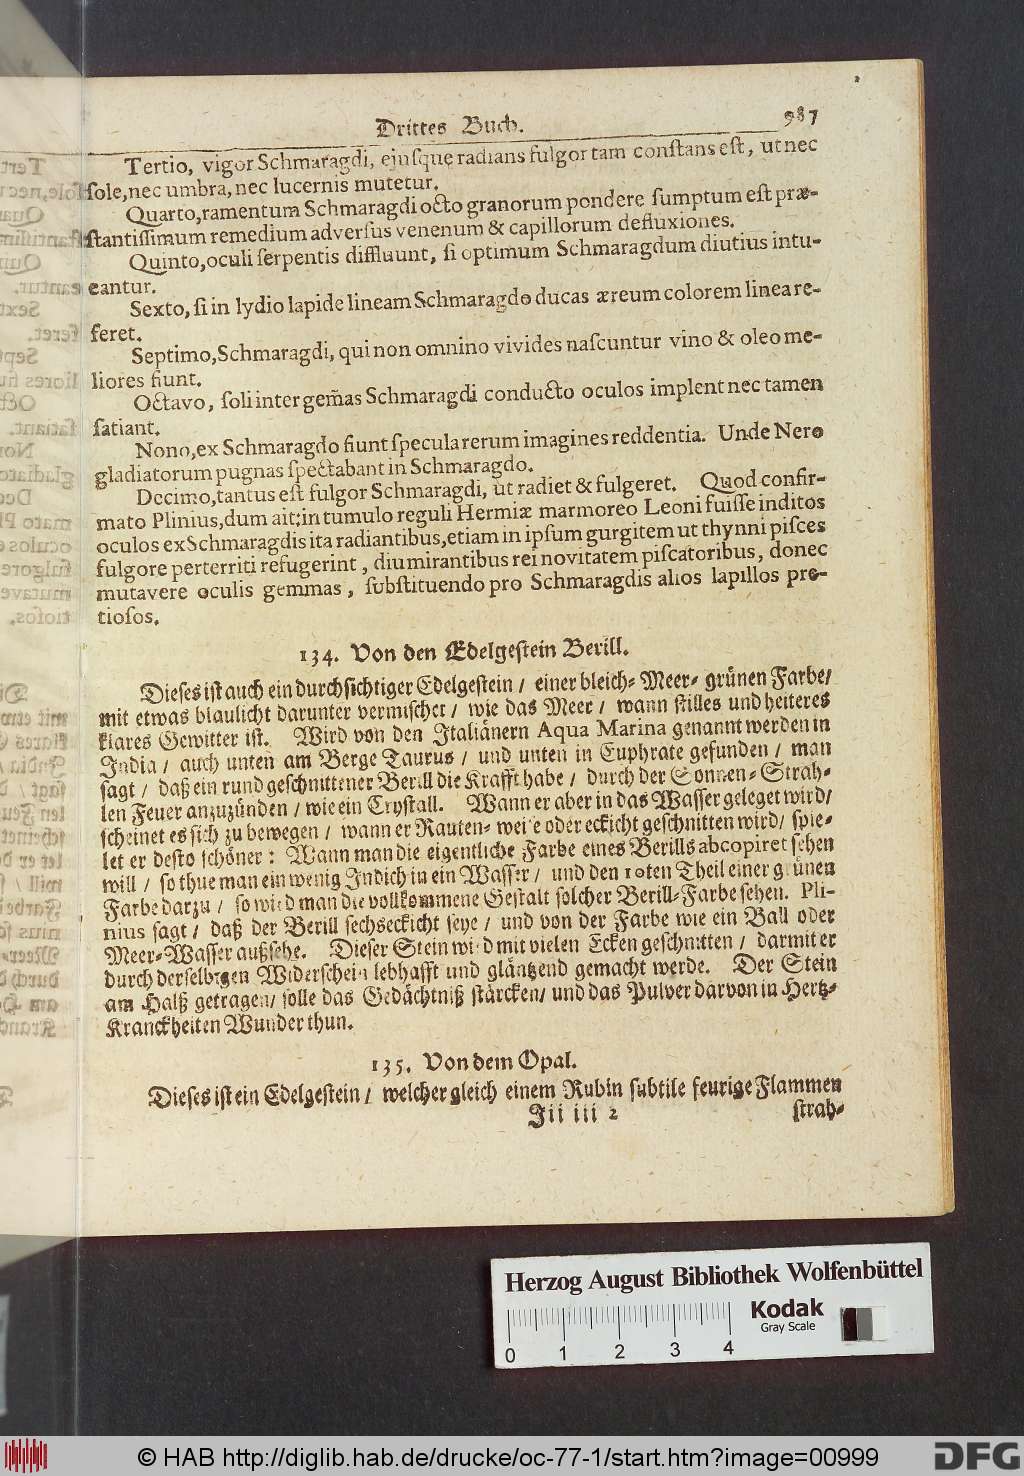 Drittes Buch. 987
Tertio, vigor Schmaragdi, ejusque radians fulgor tam constans est, ut nec
sole, nec umbra, nec lucernis mutetur.
Quarto, ramentum Schmaragdi octo granorum pondere sumptum est præ-
stantissimum remedium adversus venenum & capillorum defluxiones.
Quinto, oculi serpentis diffluunt, si optimum Schmaragdum diutius intu-
eantur.
Sexto, si in lydio lapide lineam Schmaragdo ducas æreum colorem linea re-
feret.
Septimo, Schmaragdi, qui non omnino vivides nascuntur vino & oleo me-
liores fiunt.
Octavo, soli inter gem̃as Schmaragdi conducto oculos implent nec tamen
satiant.
Nono, ex Schmaragdo fiunt specula rerum imagines reddentia. Unde Nero
gladiatorum pugnas spectabant in Schmaragdo.
Decimo, tantus est fulgor Schmaragdi, ut radiet & fulgeret. Quod confir-
mato Plinius, dum ait: in tumulo reguli Hermiæ marmoreo Leoni fuisse inditos
oculos ex Schmaragdis ita radiantibus, etiam in ipsum gurgitem ut thynni pisces
fulgore perterriti refugerint, diu mirantibus rei novitatem piscatoribus, donec
mutavere oculis gemmas, substituendo pro Schmaragdis alios lapillos pre-
tiosos.
134. Von den Edelgestein Berill.
Dieses ist auch ein durchsichtiger Edelgestein / einer bleich- Meer- grünen Farbe/
mit etwas blaulicht darunter vermischet / wie das Meer / wann stilles und heiteres
klares Gewitter ist. Wird von den Italiänern Aqua Marina genannt werden in
India / auch unten am Berge Taurus / und unten in Euphrate gefunden / man
sagt / daß ein rund geschnittener Berill die Krafft habe / durch der Sonnen-Strah-
len Feuer anzuzünden / wie ein Crystall. Wann er aber in das Wasser geleget wird/
scheinet es sich zu bewegen / wann er Rauten- weise oder eckicht geschnitten wird/ spie-
let er desto schöner: Wann man die eigentliche Farbe eines Berills abcopiret sehen
will / so thue man ein wenig Indich in ein Wasser / und den 10ten Theil einer grünen
Farbe darzu / so wird man die vollkommene Gestalt solcher Berill-Farbe sehen. Pli-
nius sagt / daß der Berill sechseckicht seye / und von der Farbe wie ein Ball oder
Meer-Wasser außsehe. Dieser Stein wird mit vielen Ecken geschnitten / darmit er
durch derselbigen Widerschein lebhafft und gläntzend gemacht werde. Der Stein
am Halß getragen/ solle das Gedächtniß stärcken/ und das Pulver darvon in Hertz-
Kranckheiten Wunder thun.
135. Von dem Opal.
Dieses ist ein Edelgestein / welcher gleich einem Rubin subtile feurige Flammen
Iii iii 2 strah-
Herzog August Bibliothek Wolfenbüttel
Kodak
Gray Scale
0 1 2 3 4
© HAB http://diglib.hab.de/drucke/oc-77-1/start.htm?image=00999
DFG